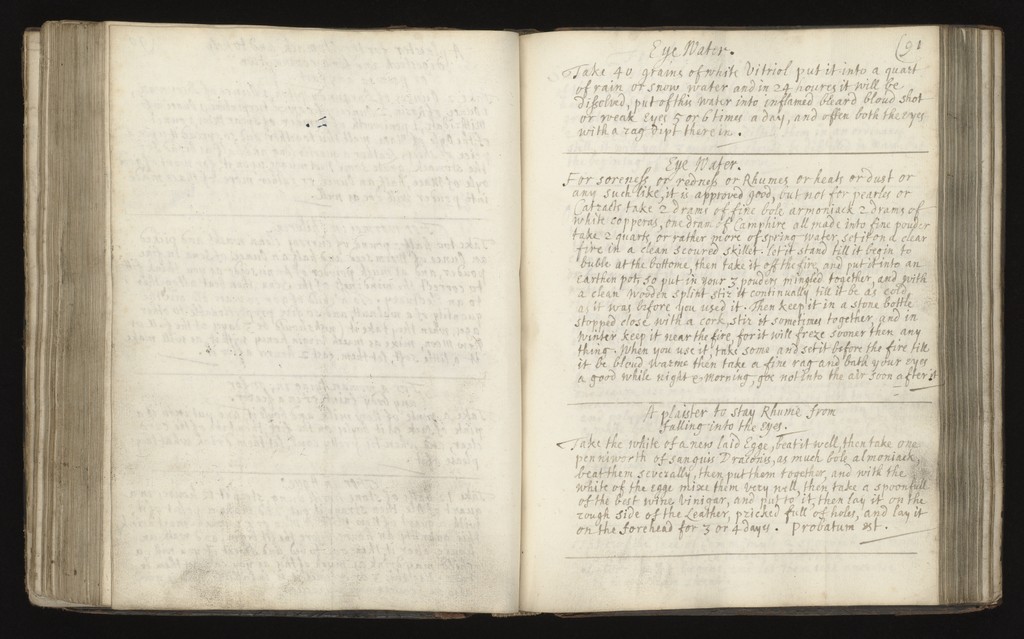 (91
Eye Water.
Take 40 grams of white Vitriol put it into a quart
of rain or snow water and in 24 houres it will be
disolved, put of this water into inflamed bleard bloud shot
or weak Eyes 5 or 6 times a day, and often bath the eyes
with a rag dipt therein.
Eye Water.
For soreness or redness or Rhumes or heats or dust or
any such like, it is approved good, but not for pearles or
take 2 drams of fine bole armoniack 2 drams of
white copperas, one dram of Camphire all made into fine pouder
take 2 quarts or rather more of spring water, set it on a clear
fire in a clean scoured skillet. let it stand till it begin to
buble at the bottome, then take it off the fire and put it into an
Earthen pot, so put in your 3 pouders mingled together, and with
a clean wooden splint stir it continually till it be as cold
as it was before you used it. Then keep it in a stone bottle
stopped close with a cork, stir it sometimes together, and in
winter keep it near the fire, for it will freze sooner then any
thing. When you use it, take some and set it before the fire till
it be bloud warme then take a fine rag and bath your eyes
a good while night & morning, goe not into the air soon after it
A plaister to stay Rhume from
falling into the eyes.
Take the white of a new laid Egge, beat it well, then take one
penniworth of sanguis Draconis, as much bole almoniack
beat them severally, then put them together, and with the
white of the egge mixe them very well, then take a spoonfull
of the best wine Vinigar, and put to it, then lay it on the
rough side of the Leather, pricked full of holes, and lay it
on the forehead for 3 or 4 dayes. Probatum est.